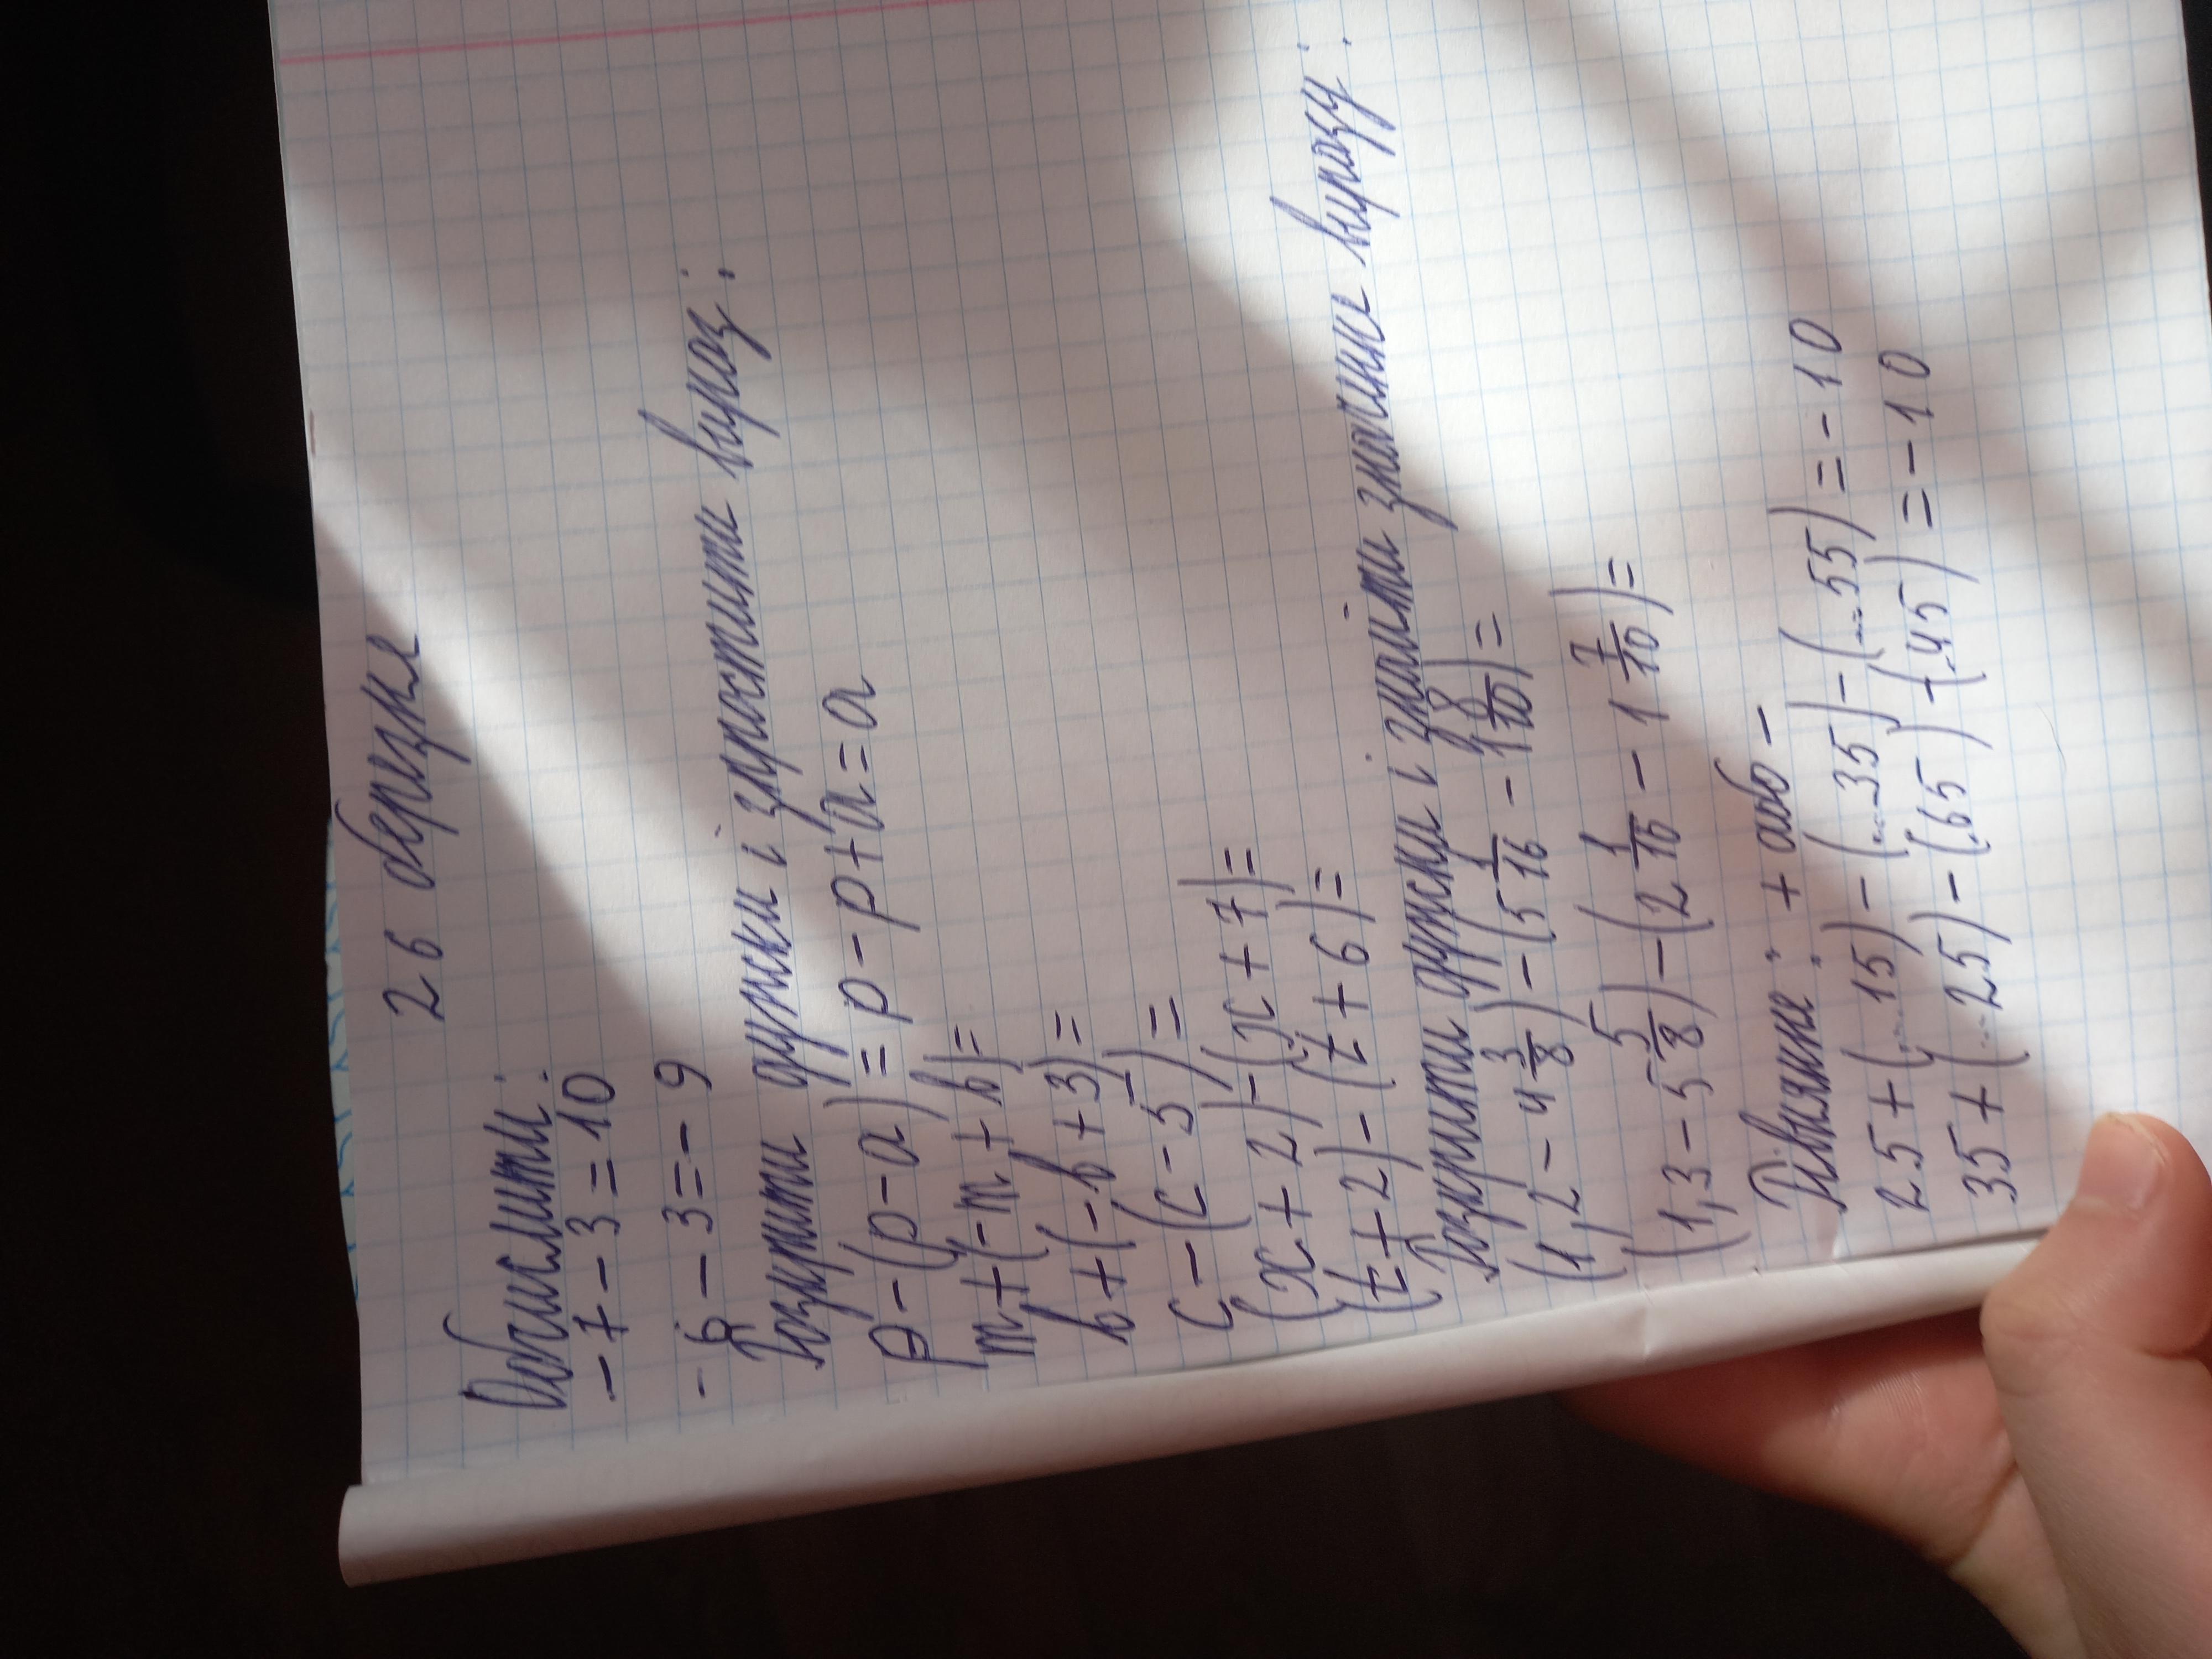 26 березня
Обчислити:
-7-3=10
-6-3=-9
Розкрити дужки і спростити вираз:
p-(p-a)=p-p+a=a
m+(-m+b)=
b+(-b+3)=
c-(c-5)=
(x+2)-(x+7)=
(t+2)-(t+6)=
Розкрити дужки і знайти значення виразу:
(1,2-4 3/8)-(5 1/16-1 8/10)=
(1,3-5 5/8)-(2 1/16-1 7/10)=
+ або -
25+(...15)-(...35)-(...55)=-10
35+(...25)-(.65)+(.45)=-10